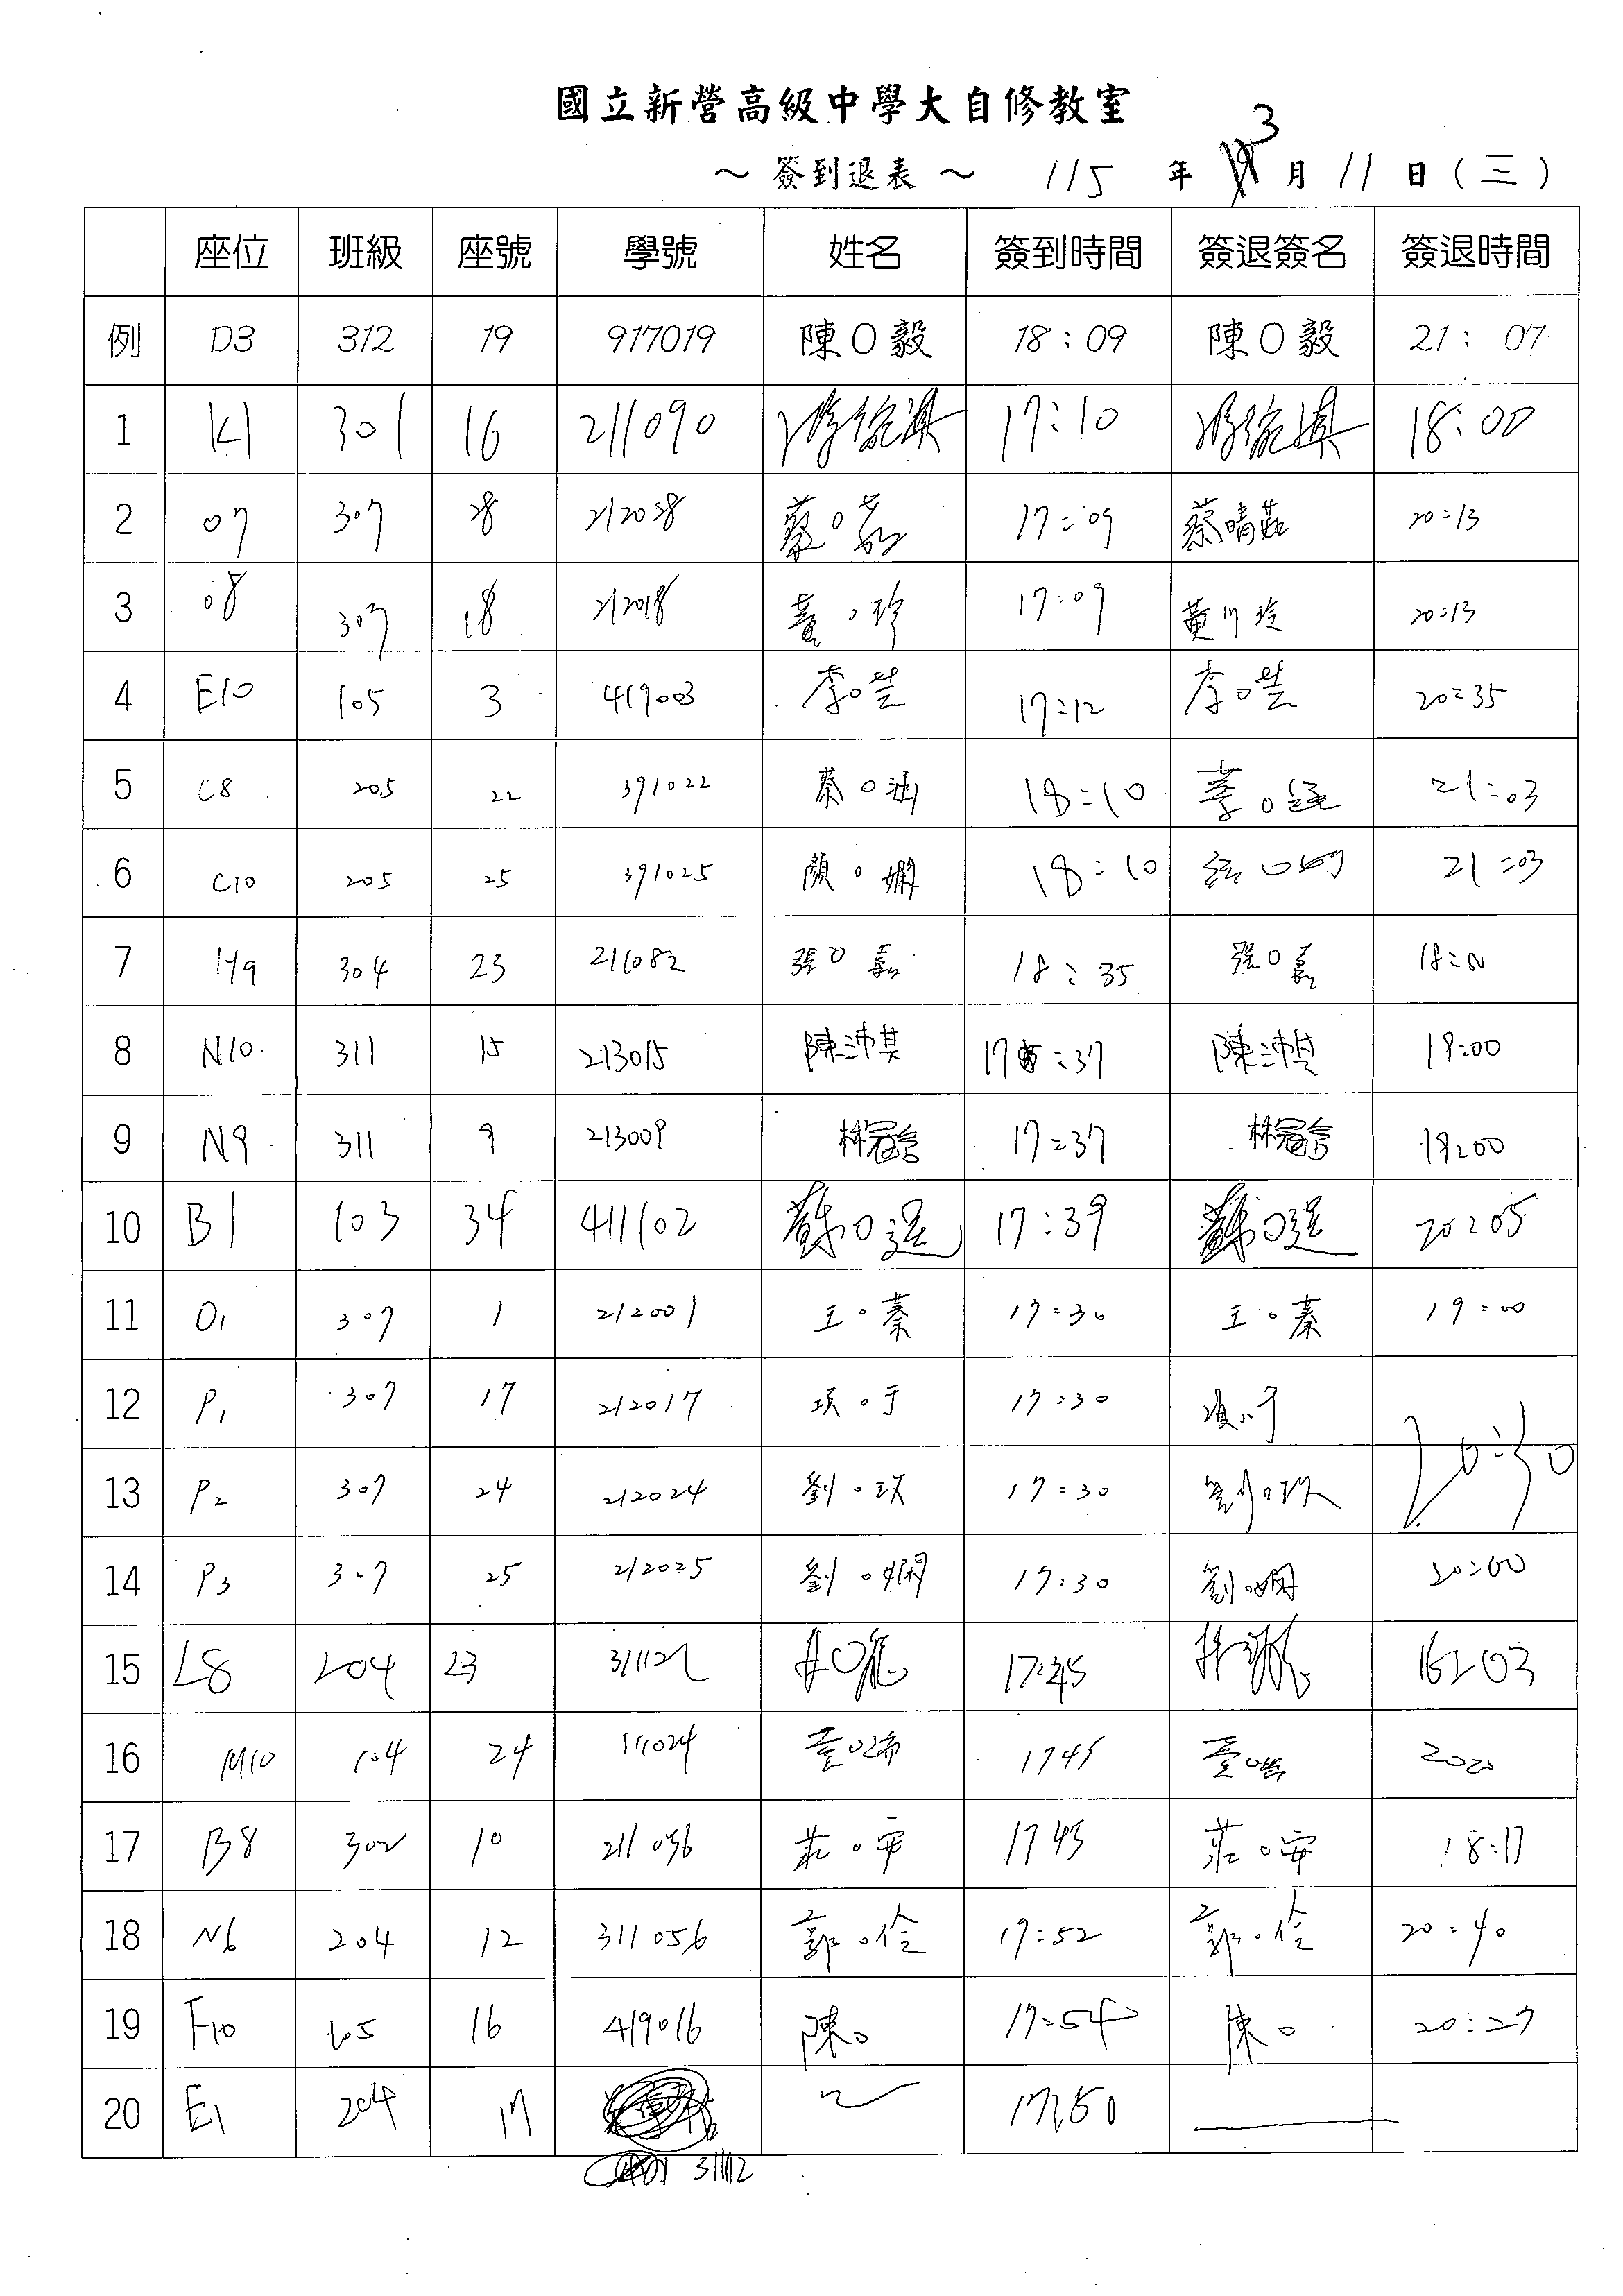 國立新營高級中學大自修教室
～ 簽到退表 ～ 115 年 3 月 11 日 ( 三 )
座位 班級 座號 學號 姓名 簽到時間 簽退簽名 簽退時間
例 D3 312 19 917019 陳O毅 18:09 陳O毅 21:07
1 K1 301 16 211090 17:10 18:00
2 O7 307 28 212028 蔡O茹 17:09 蔡晴茹 20:13
3 O8 307 18 212018 黃O玲 17:09 黃川玲 20:13
4 E10 105 3 419003 李O芸 17:12 李O芸 20:35
5 C8 205 22 391022 蔡O涵 18:10 21:03
6 C10 205 25 391025 顏O嫻 18:10 21:03
7 H9 304 23 211082 張O嘉 18:35 張O嘉
8 N10 311 15 213015 陳沛其 17:37 陳沛其 19:00
9 N9 311 9 213009 林冠言 17:37 林冠言 19:00
10 B1 103 34 411102 蘇O選 17:39 蘇O選 20:05
11 O1 307 1 212001 王O蓁 17:30 王O蓁 19:00
12 P1 307 17 212017 項O于 17:30 項O于
20:30
13 P2 307 24 212024 劉O玟 17:30 劉O玟
14 P3 307 25 212025 劉O嫻 17:30 劉O嫻 20:00
15 L8 204 23 17:45
16 M10 104 24 1745
17 B8 302 10 211036 莊O安 1745 莊O安 18:17
18 N6 204 12 311056 郭O佺 17:52 郭O佺 20:40
19 F10 105 16 419016 陳O 17:54 陳O 20:27
20 E1 204 17 17:50
311112